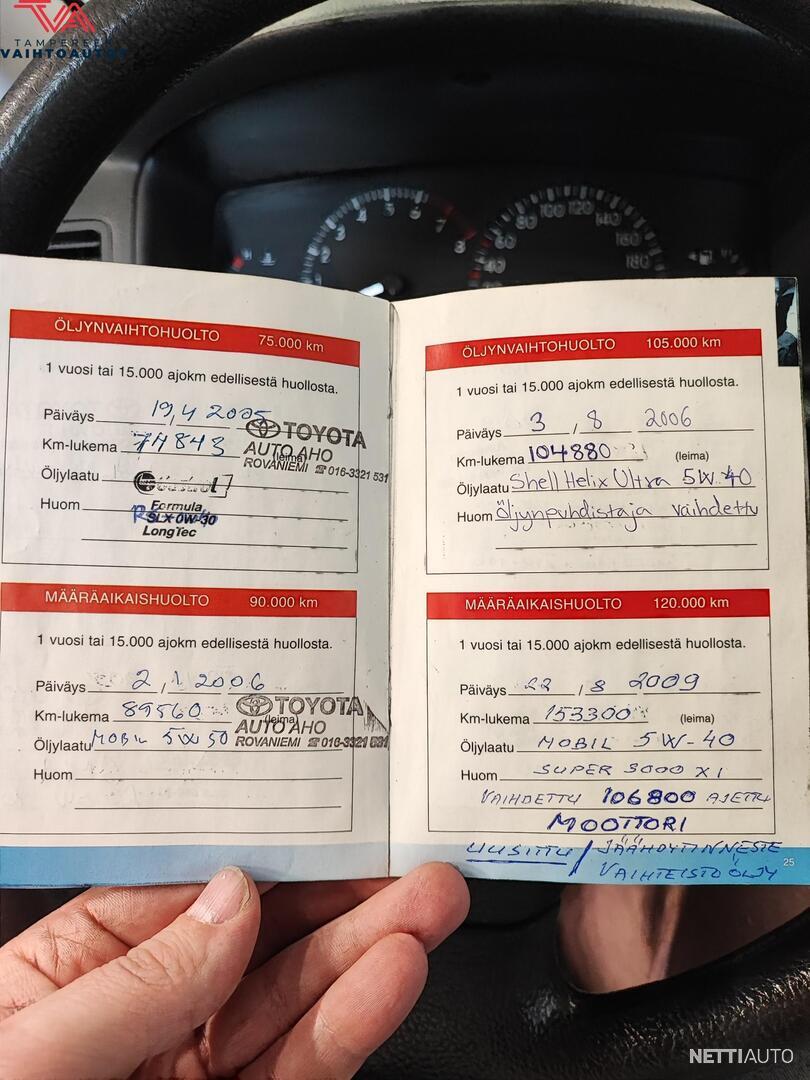 TAMPEREEN
VAIHTOAUTOT
ÖLJYNVAIHTOHUOLTO 75.000 km
1 vuosi tai 15.000 ajokm edellisestä huollosta.
Päiväys 19,4 2005
Km-lukema 74843 (leima)
TOYOTA
AUTO AHO
ROVANIEMI ☎ 016-3321 531
Öljylaatu
Huom Formula
SLX 0W-30
LongTec
MÄÄRÄAIKAISHUOLTO 90.000 km
1 vuosi tai 15.000 ajokm edellisestä huollosta.
Päiväys 2 / 1 2006
Km-lukema 89560 (leima)
TOYOTA
AUTO AHO
ROVANIEMI ☎ 016-3321 531
Öljylaatu MOBIL 5W50
Huom
ÖLJYNVAIHTOHUOLTO 105.000 km
1 vuosi tai 15.000 ajokm edellisestä huollosta.
Päiväys 3 / 8 2006
Km-lukema 104880 (leima)
Öljylaatu Shell Helix Ultra 5W-40
Huom öljynpuhdistaja vaihdettu
MÄÄRÄAIKAISHUOLTO 120.000 km
1 vuosi tai 15.000 ajokm edellisestä huollosta.
Päiväys 22 / 8 2009
Km-lukema 153300 (leima)
Öljylaatu MOBIL 5W-40
Huom SUPER 3000 X1
VAIHDETTU 106800 AJETTU
MOOTTORI
UUSITTU / JÄÄHDYTINNESTE
VAIHTEISTOÖLJY
25
NETTIAUTO